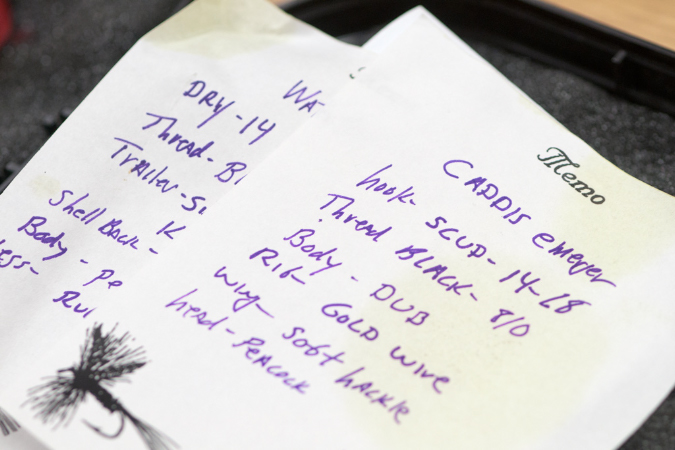 WA
DRY-14
Thread-Bl
Trailer-Si
K
Shell Back-
Body-Pe
ess-
Rui
Memo
CADDIS emeger
hook- SCUD-14-18
Thread BLACK- 8/0
Body- DUB
Rib- GOLD wire
wing- Soft hackle
head-Peacock